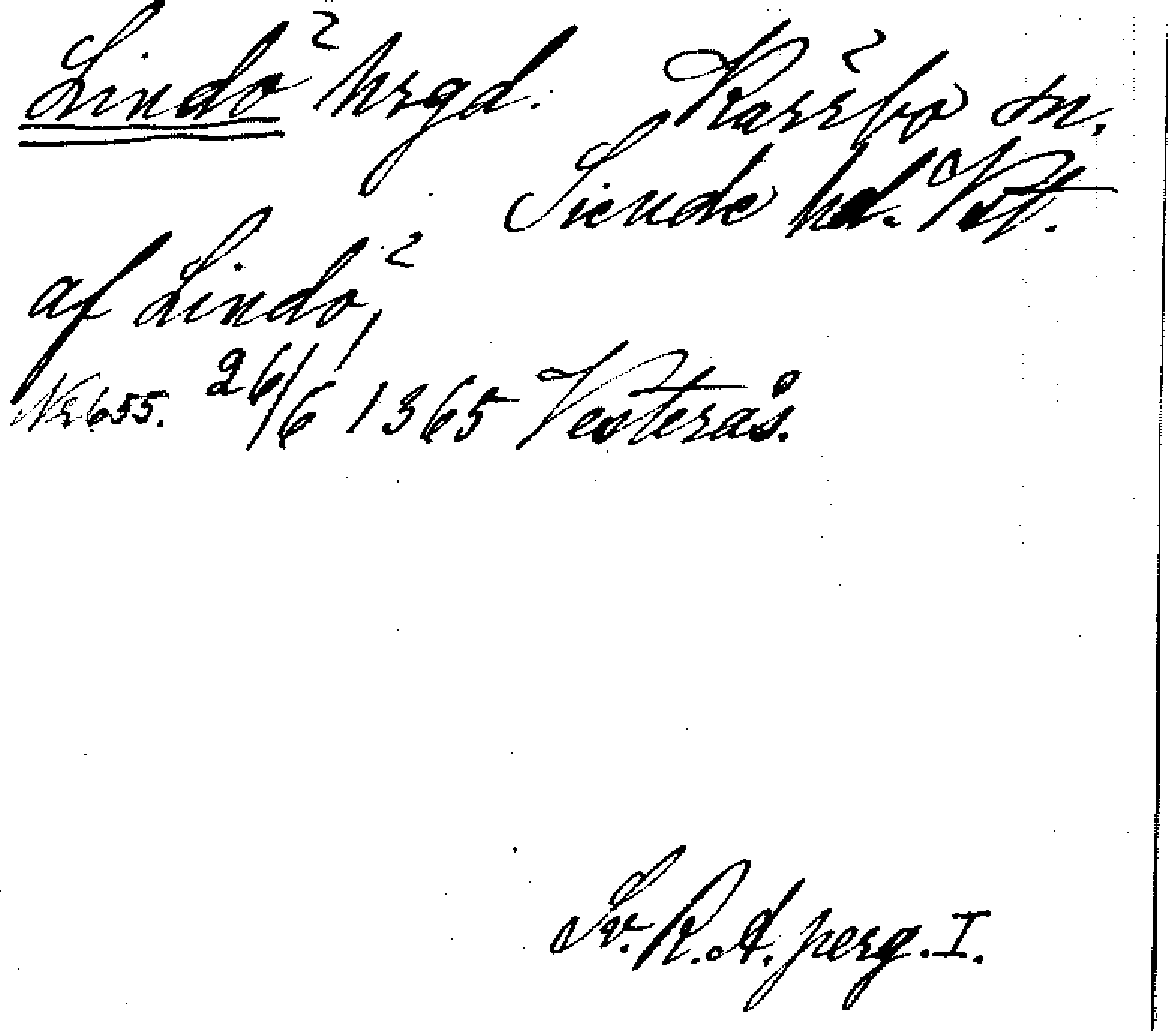 Lindö hrgd. Kärrbo sn.
Siende hd.
af Lindö,
Nr 655. 26/6 1365 Vesterås.
Sv. R. A. perg. I.